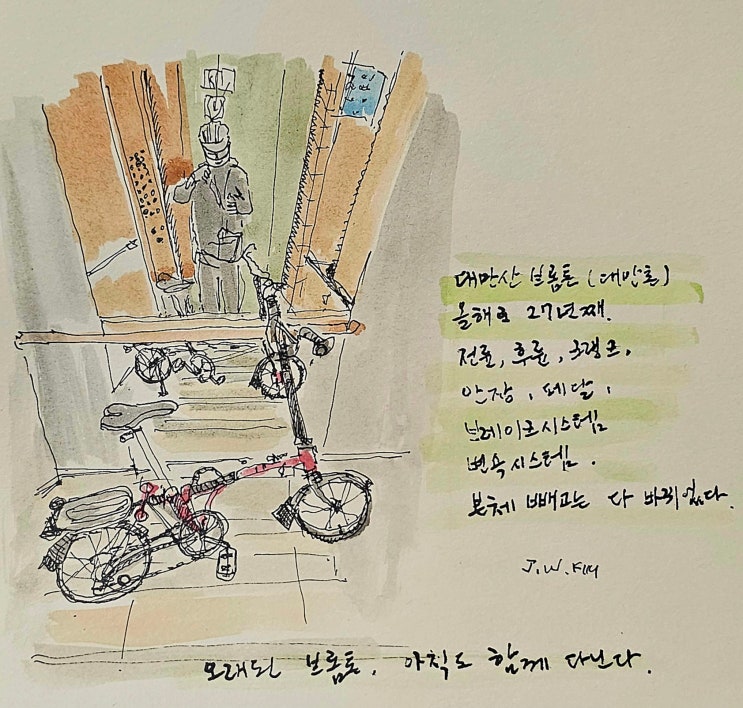 대만산 브롬톤 (대만톤)
올해로 27년째.
전륜, 후륜, 크랭크,
안장, 페달,
브레이크시스템
변속시스템.
본체 빼고는 다 바뀌었다.
J.W.Kim
오래된 브롬톤, 아직도 함께 다닌다.